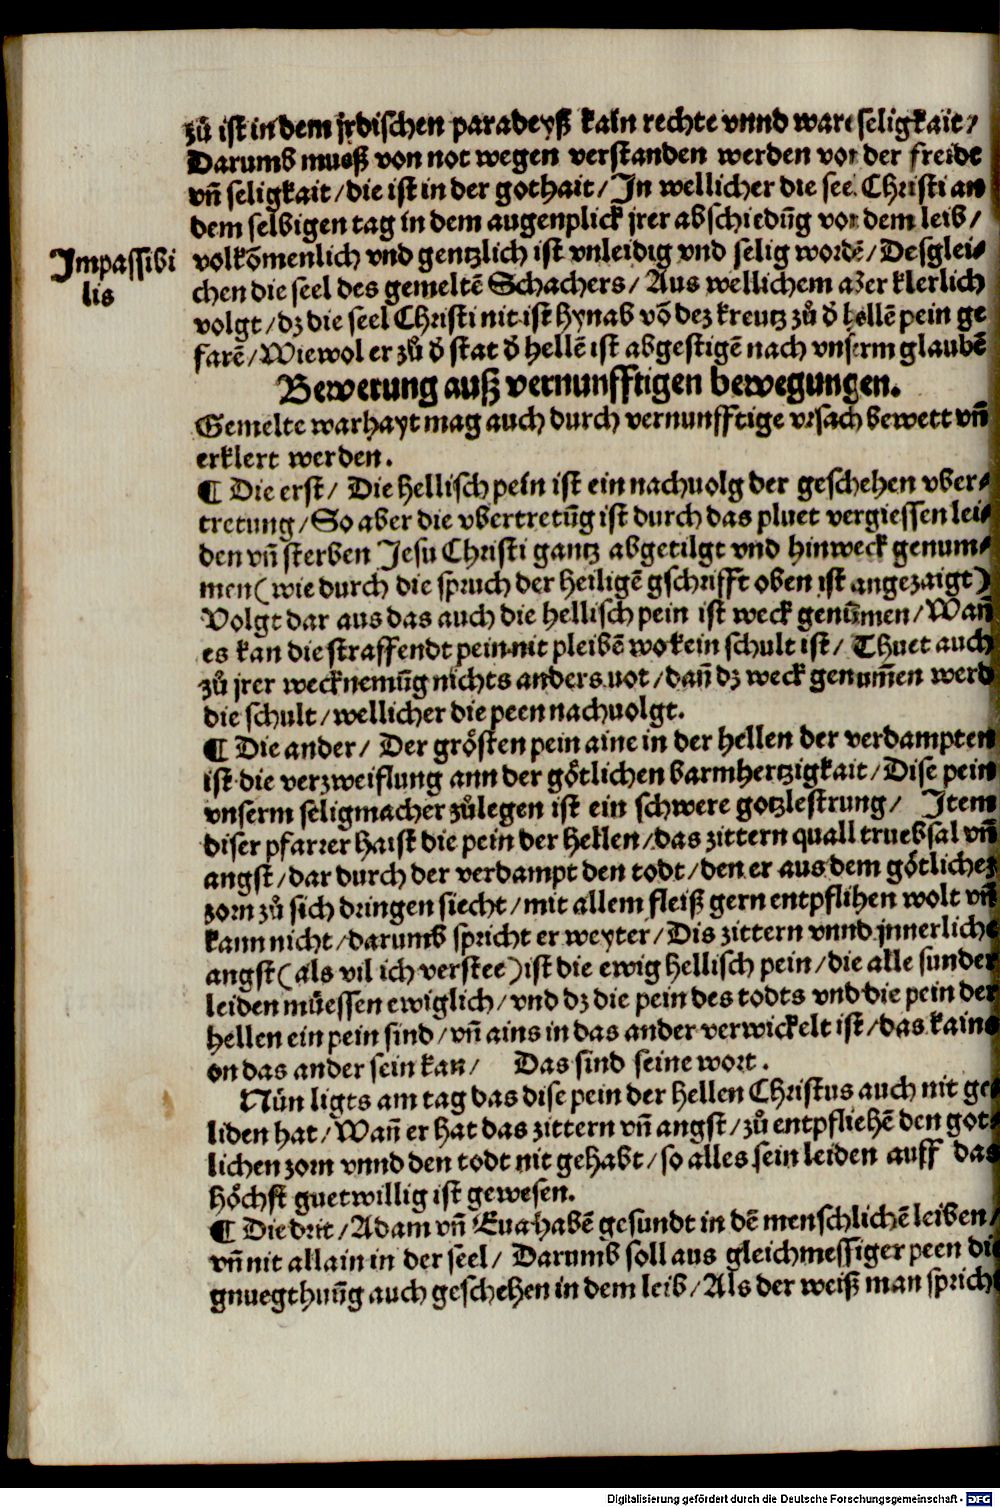 zů ist in dem jrdischen paradeyß kain rechte vnnd ware seligkait/
Darumb mueß von not wegen verstanden werden von der freidt
vñ seligkait/die ist in der gothait/In wellicher die seel Christi an
dem selbigen tag in dem augenplick jrer abschiedũg von dem leib/
Impassibi
lis
volkõmenlich vnd gentzlich ist vnleidig vnd selig wordẽ/Desglei⸗
chen die seel des gemeltẽ Schachers/Aus wellichem aber klerlich
volgt/dz die seel Christi nit ist hynab võ dez kreutz zů ð hellẽ pein ge
farẽ/Wiewol er zů ð stat ð hellẽ ist abgestigẽ nach vnserm glaubẽ
Bewerung auß vernunfftigen bewegungen.
Gemelte warhayt mag auch durch vernunfftige vrsach bewert vñ
erklert werden.
¶ Die erst/ Die hellisch pein ist ein nachuolg der geschehen vber⸗
tretung/So aber die vbertretũg ist durch das pluet vergiessen lei⸗
den vñ sterben Jesu Christi gantz abgetilgt vnd hinweck genum⸗
men(wie durch die spruch der heiligẽ gschrifft oben ist angezaigt)
Volgt dar aus das auch die hellisch pein ist weck genũmen/Wañ
es kan die straffendt pein nit pleibẽ wo kein schult ist/ Thuet auch
zů jrer wecknemũg nichts anders not/dañ dz weck genum̃en werd
die schult/wellicher die peen nachuolgt.
¶ Die ander/ Der grösten pein aine in der hellen der verdampten
ist die verzweiflung ann der götlichen barmhertzigkait/Dise pein
vnserm seligmacher zůlegen ist ein schwere gotzlestrung/ Item
diser pfarrer haist die pein der hellen/das zittern quall truebsal vñ
angst/dar durch der verdampt den todt/den er aus dem götlichez
zorn zů sich dringen siecht/mit allem fleiß gern entpflihen wolt vñ
kann nicht/darumb spricht er weyter/Dis zittern vnnd jnnerliche
angst(als vil ich verstee)ist die ewig hellisch pein/die alle sunder
leiden müessen ewiglich/vnd dz die pein des todts vnd die pein der
hellen ein pein sind/vñ ains in das ander verwickelt ist/das kains
on das ander sein kan/ Das sind seine wort.
Nůn ligts am tag das dise pein der hellen Christus auch nit ge⸗
liden hat/Wañ er hat das zittern vñ angst/zů entpfliehẽ den got⸗
lichen zorn vnnd den todt nit gehabt/so alles sein leiden auff das
höchst guetwillig ist gewesen.
¶ Die drit/Adam vñ Eua habẽ gesundt in dẽ menschlichẽ leiben/
vñ nit allain in der seel/ Darumb soll aus gleichmessiger peen die
gnuegthuũg auch geschehen in dem leib/Als der weiß man spricht
Digitalisierung gefördert durch die Deutsche Forschungsgemeinschaft - DFG